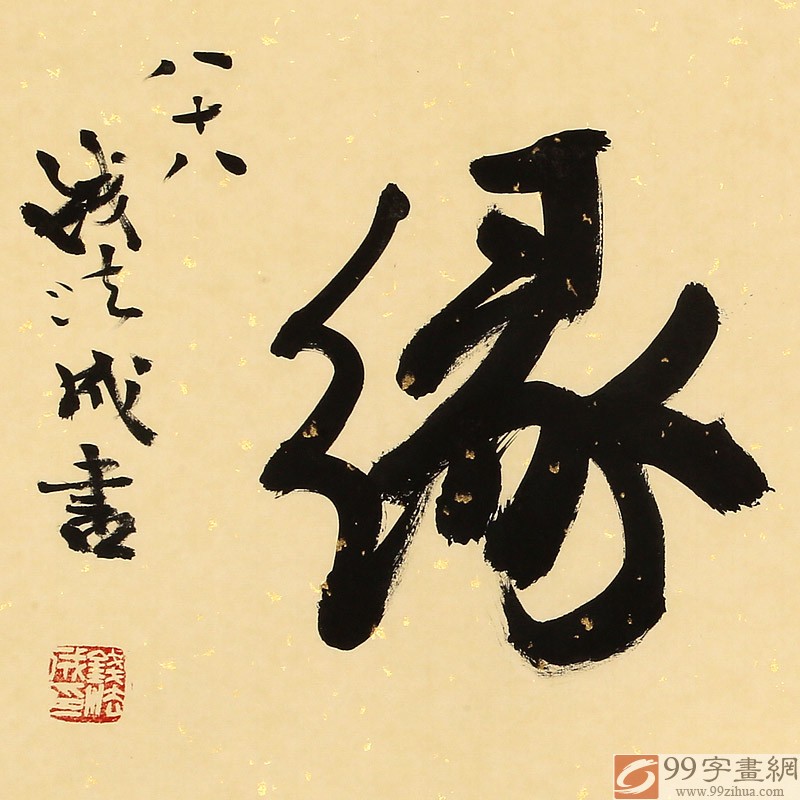 缘
八十八
钱法成書
錢法成印
99字畫網
www.99zihua.com